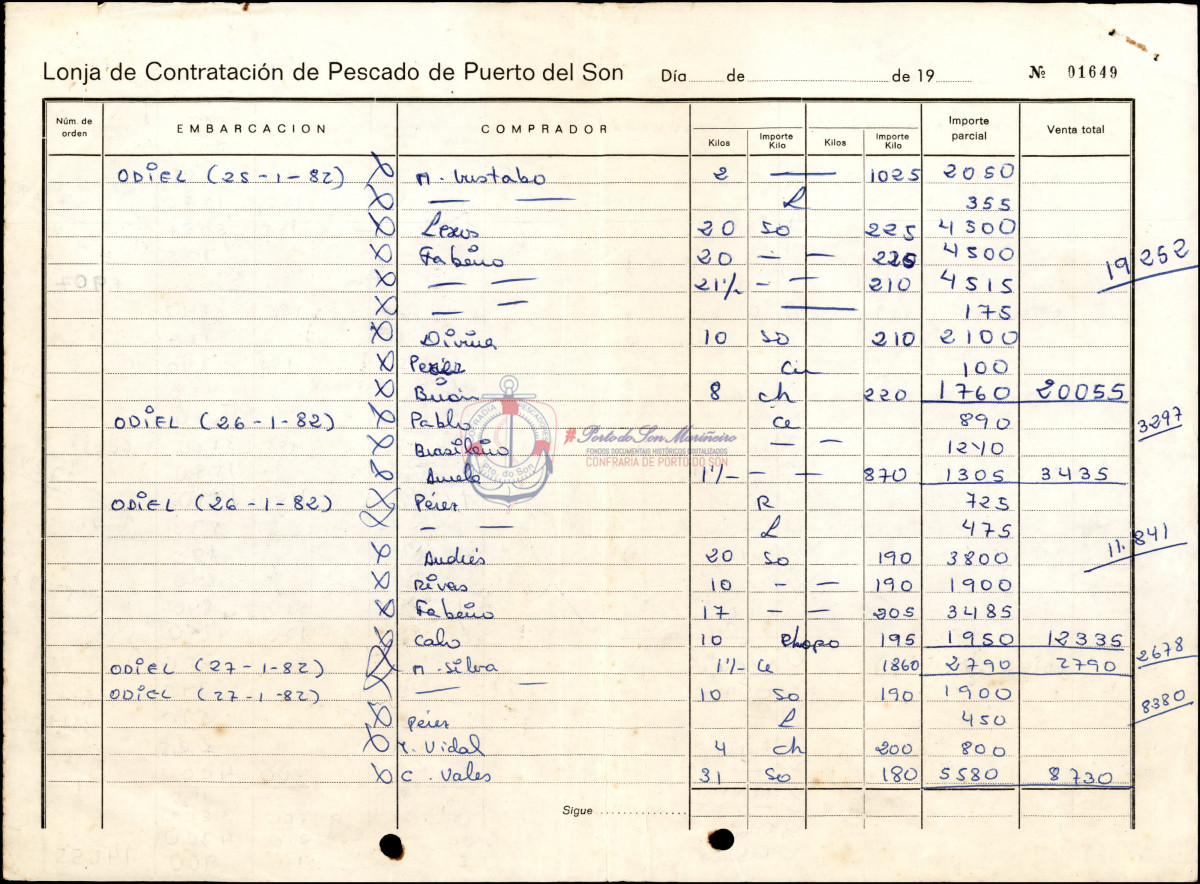 Lonja de Contratación de Pescado de Puerto del Son Día de de 19 Nº 01649
Núm. de orden EMBARCACION COMPRADOR Kilos Importe Kilo Kilos Importe Kilo Importe parcial Venta total
ODIEL (25-1-82) X M. Gustabo 2 — 1025 2050
X — — L 355
X Lexus 20 SO 225 4500
X Fabeiro 20 — — 225 4500
19252
X — — 21½ - — 210 4515
X — — — 175
X Divina 10 SO 210 2100
X Perez 100
X 8 ch 220 1760 20055
ODIEL (26-1-82) X Pablo Ce 890
3297
X Brasileño — — 1240
X 1½ — — 870 1305 3435
ODIEL (26-1-82) X Pérez R 725
X — — L 475
11.841
X Andrés 20 SO 190 3800
X Rivas 10 - — 190 1900
X Fabeiro 17 - — 205 3485
X Calo 10 Rhopo 195 1950 12335
2678
ODIEL (27-1-82) X M. Silva 1½ Ce 1860 2790 2790
ODIEL (27-1-82) X — — 10 SO 190 1900
8380
X Pérez L 450
X Y. Vidal 4 ch 200 800
X C. Vales 31 SO 180 5580 8730
Sigue
COFRADIA PESCADORES
Pto. do Son
#Porto do Son Mariñeiro
FONDOS DOCUMENTAIS HISTÓRICOS DIXITALIZADOS
CONFRARIA DE PORTO DO SON